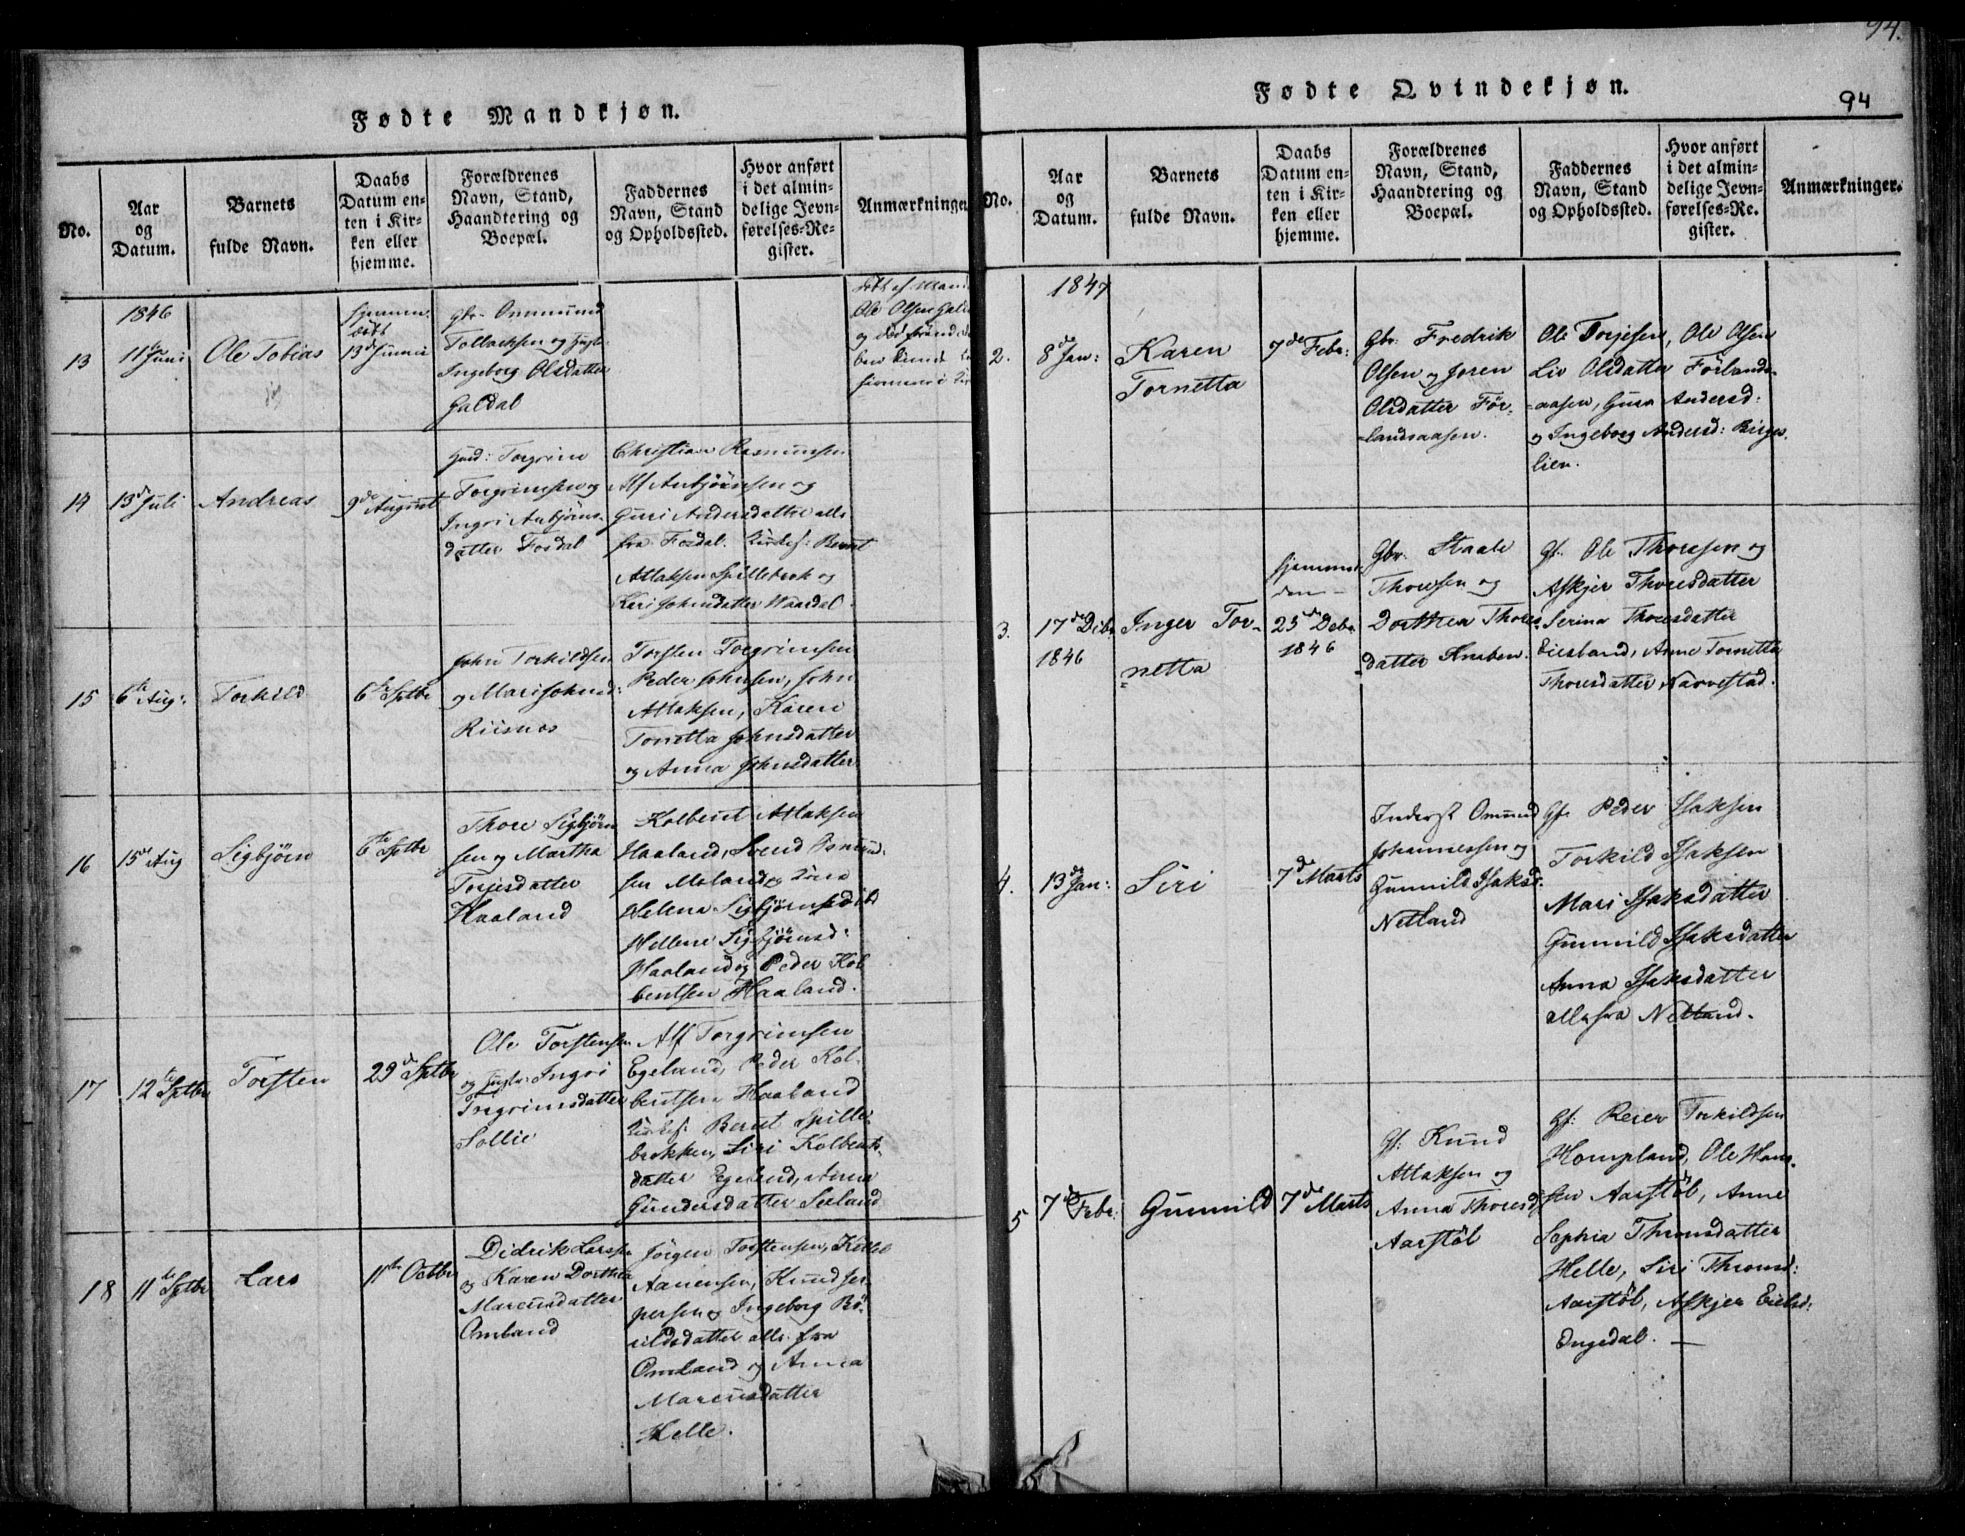 94.
94
Fødte Mandkjøn.
No.
Aar
og
Datum.
Barnets
fulde Navn.
Daabs
Datum en-
ten i Kir-
ken eller
hjemme.
Forældrenes
Navn, Stand,
Haandtering og
Boepæl.
Faddernes
Navn, Stand
og Opholdssted.
Hvor anført
i det almin-
delige Jevn-
førelses-Re-
gister.
Anmærkninger
1846
13
11te Juni
Ole Tobias
hjemme-
døbt
13de Junii
Gbr. Ommund
Tollacksen og
Ingeborg Olsdatter
Galdal
Døbt af
Ole Olsen
og
14
13de Juli
Andreas
9de August
Torgrim
Torgrimsen og
Ingri Anbjørns-
datter Fosdal
Christian Rasmunsen
Alf Anbjørnsen og
Guri Andersdatter alle
fra Fosdal. Berent
Atlaksen Spillebrok og
Keri Johnsdatter Waardal.
15
6te Aug:
Torkild
6te Sptbr
John Torkildsen
og Mari Johnsd:
Riisnes
Torsten Torgrimsen
Peder Johnsen, John
Atlaksen, Karen
Tonetta Johnsdatter
og Anna Johnsdatter
16
15de Aug
Sigbjørn
6te Sptbr
Thore Sigbjørn
sen og Martha
Torjesdatter
Haaland
Kolbent Atlaksen
Haaland, Svend
sen Meland og
Helena Sigbjørnsd
Hellene Sigbjørnsd:
Haaland og Peder Kol
bentsen Haaland.
17
12te Sptbr
Torsten
29de Sptbr
Ole Torstensen
og Ingri
Torgrimsdatter
Sollie
Alf Torgrimsen
Egeland, Peder Kol-
bentsen Haaland
Berent Spille
brokken, Siri Kolbents-
datter Egeland, Anna
Gundersdatter Seeland
18
11te Sptbr
Lars
11te Octbr
Didrik Larssen
og Karen Dorthea
Marcusdatter
Omland
Jørgen Torstensen, Kettel
Aanensen, Knud Jer-
persen og Ingeborg Bø-
ildsdatter alle fra
Omland og Anna
Marcusdatter
Helle.
Fødte Qvindekjøn.
No.
Aar
og
Datum.
Barnets
fulde Navn.
Daabs
Datum en-
ten i Kir-
ken eller
hjemme.
Forældrenes
Navn, Stand,
Haandtering og
Boepæl.
Faddernes
Navn, Stand
og Opholdssted.
Hvor anført
i det almin-
delige Jevn-
førelses-Re-
gister.
Anmærkninger.
1847
2.
8de Jan:
Karen
Tornetta
7de Febr:
Gbr. Fredrik
Olsen og Joren
Olsdatter Før-
-landsaasen.
Ole Torjesen, Ole Olsen
Liv Olsdatter Förlands-
-aasen, Gura Andersd:
og Ingeborg Andersd: Birge-
lien.
3.
17de Dcbr
1846
Inger Tor-
-netta
hjemme-
den -
23de Dcbr
1846
Gbr. Staale
Thoresen og
Dorthea Thores-
datter Knaben.
Gf. Ole Thoresen og
Askjer Thoresdatter
Serina Thoresdatter
Eiesland, Anne Tornetta
Thoresdatter Narvestad.
4.
13de Jan:
Siri
7de Marts
Inderst Omund
Johannessen og
Gunnild Isaksd:
Netland
Gf. Peder Isaksen
Torkild Isaksen
Mari Isaksdatter
Gunnild Isaksdatter
Anna Isaksdatter
alle fra Netland.
5
7de Febr:
Gunnild
7de Marts
Gf. Knud
Atlaksen og
Anna Thoresd
Aarstöl
Gf. Reier Torkildsen
Hompland, Ole Han-
sen Aarstöl, Anne
Sophia Thronsdatter
Helle, Siri Thronsd:
Aarstöl, Askjer Eielsd:
Ongedal. -